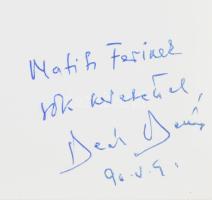 Matit Ferinek
sok szeretettel,
Deák Dénes
90. V. 9.